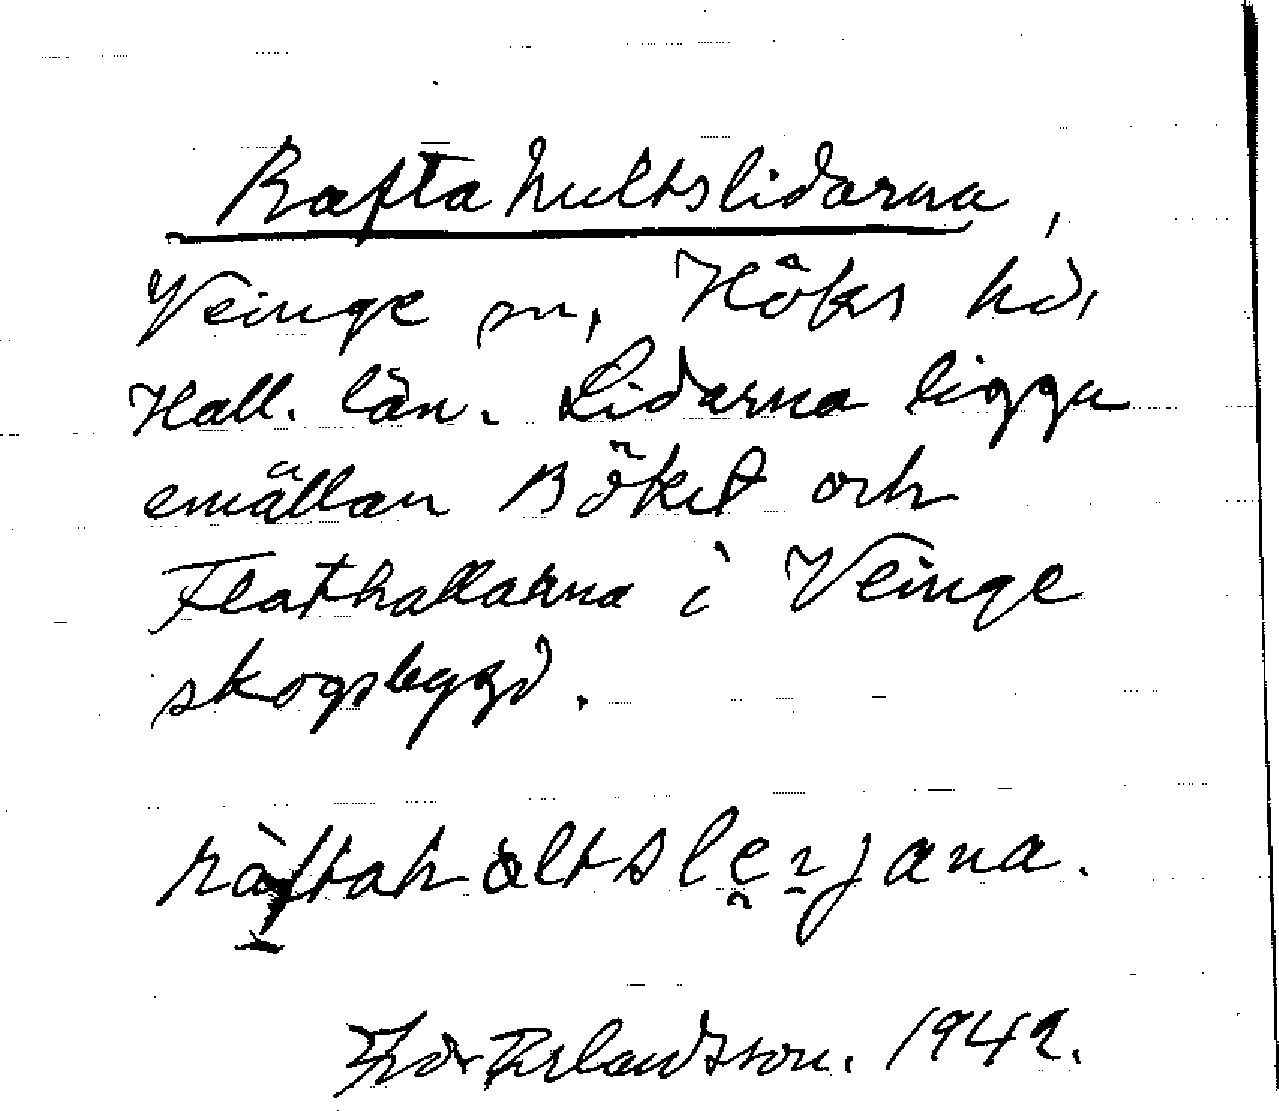 Raftahultslidarna,
Veinge sn, Höks hd,
Hall. län. Lidarna ligga
emällan Böket och
Flathallarna i Veinge
skogsbygd.
räftahåltslejjana.
Erlandsson. 1942.